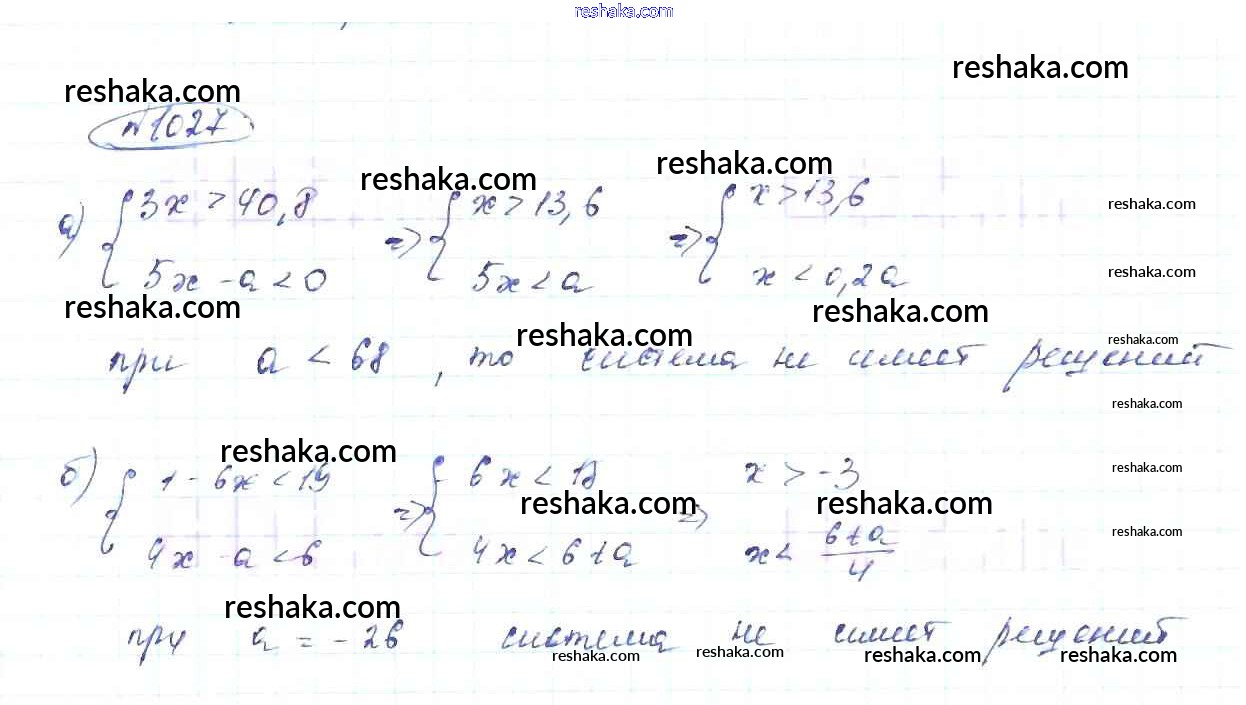 reshaka.com
reshaka.com
reshaka.com
№1027
reshaka.com
reshaka.com
а) { 3x > 40,8 => { x > 13,6 => { x > 13,6
reshaka.com
5x - a < 0 5x < a x < 0,2a
reshaka.com
reshaka.com
reshaka.com
reshaka.com
reshaka.com
при a < 68, то система не имеет решений
reshaka.com
reshaka.com
б) { 1 - 6x < 19 => { 6x < 18 => x > -3
reshaka.com
reshaka.com
reshaka.com
reshaka.com
4x a < 6 4x < 6 + a x < 6+a/4
reshaka.com
при a = -26 система не имеет решений
reshaka.com
reshaka.com
reshaka.com
reshaka.com